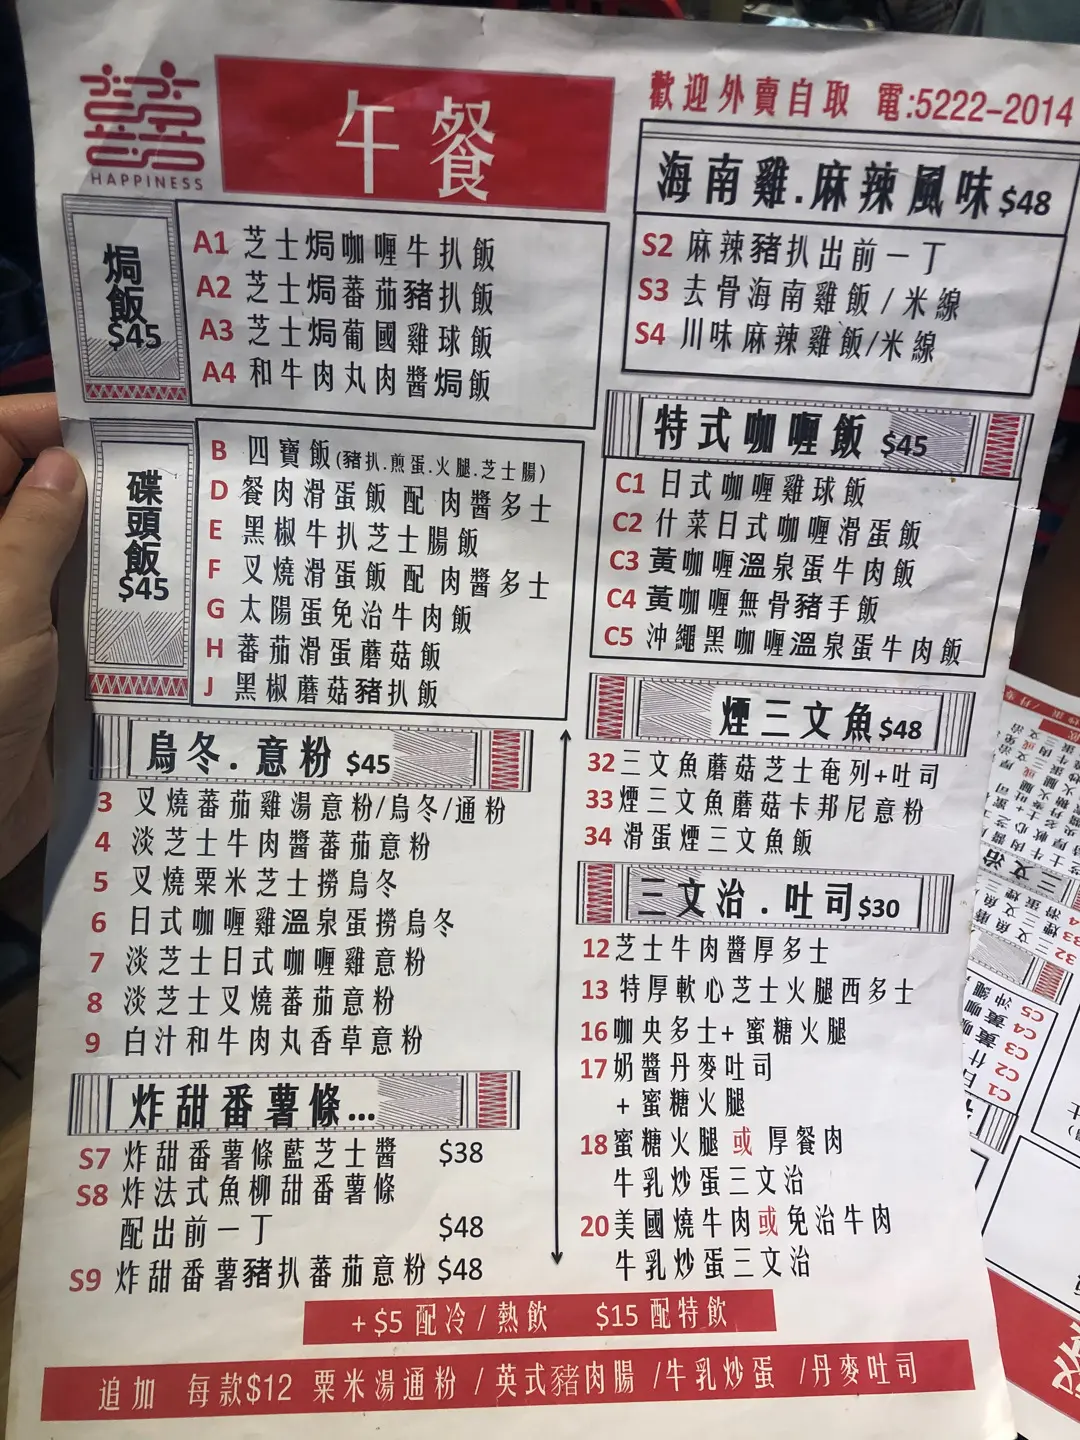 囍
HAPPINESS
午餐
歡迎外賣自取 電:5222-2014
焗飯
$45
A1 芝士焗咖喱牛扒飯
A2 芝士焗蕃茄豬扒飯
A3 芝士焗葡國雞球飯
A4 和牛肉丸肉醬焗飯
碟頭飯
$45
B 四寶飯(豬扒.煎蛋.火腿.芝士腸)
D 餐肉滑蛋飯 配 肉醬多士
E 黑椒牛扒芝士腸飯
F 叉燒滑蛋飯 配 肉醬多士
G 太陽蛋免治牛肉飯
H 蕃茄滑蛋蘑菇飯
J 黑椒蘑菇豬扒飯
烏冬.意粉 $45
3 叉燒蕃茄雞湯意粉/烏冬/通粉
4 淡芝士牛肉醬蕃茄意粉
5 叉燒粟米芝士撈烏冬
6 日式咖喱雞溫泉蛋撈烏冬
7 淡芝士日式咖喱雞意粉
8 淡芝士叉燒蕃茄意粉
9 白汁和牛肉丸香草意粉
炸甜番薯條...
S7 炸甜番薯條藍芝士醬 $38
S8 炸法式魚柳甜番薯條
配出前一丁 $48
S9 炸甜番薯豬扒蕃茄意粉 $48
海南雞.麻辣風味 $48
S2 麻辣豬扒出前一丁
S3 去骨海南雞飯/米線
S4 川味麻辣雞飯/米線
特式咖喱飯 $45
C1 日式咖喱雞球飯
C2 什菜日式咖喱滑蛋飯
C3 黃咖喱溫泉蛋牛肉飯
C4 黃咖喱無骨豬手飯
C5 沖繩黑咖喱溫泉蛋牛肉飯
煙三文魚 $48
32 三文魚蘑菇芝士奄列+吐司
33 煙三文魚蘑菇卡邦尼意粉
34 滑蛋煙三文魚飯
三文治.吐司 $30
12 芝士牛肉醬厚多士
13 特厚軟心芝士火腿西多士
16 咖央多士+蜜糖火腿
17 奶醬丹麥吐司
+蜜糖火腿
18 蜜糖火腿 或 厚餐肉
牛乳炒蛋三文治
20 美國燒牛肉或免治牛肉
牛乳炒蛋三文治
+$5 配冷/熱飲 $15 配特飲
追加 每款$12 粟米湯通粉/英式豬肉腸/牛乳炒蛋/丹麥吐司